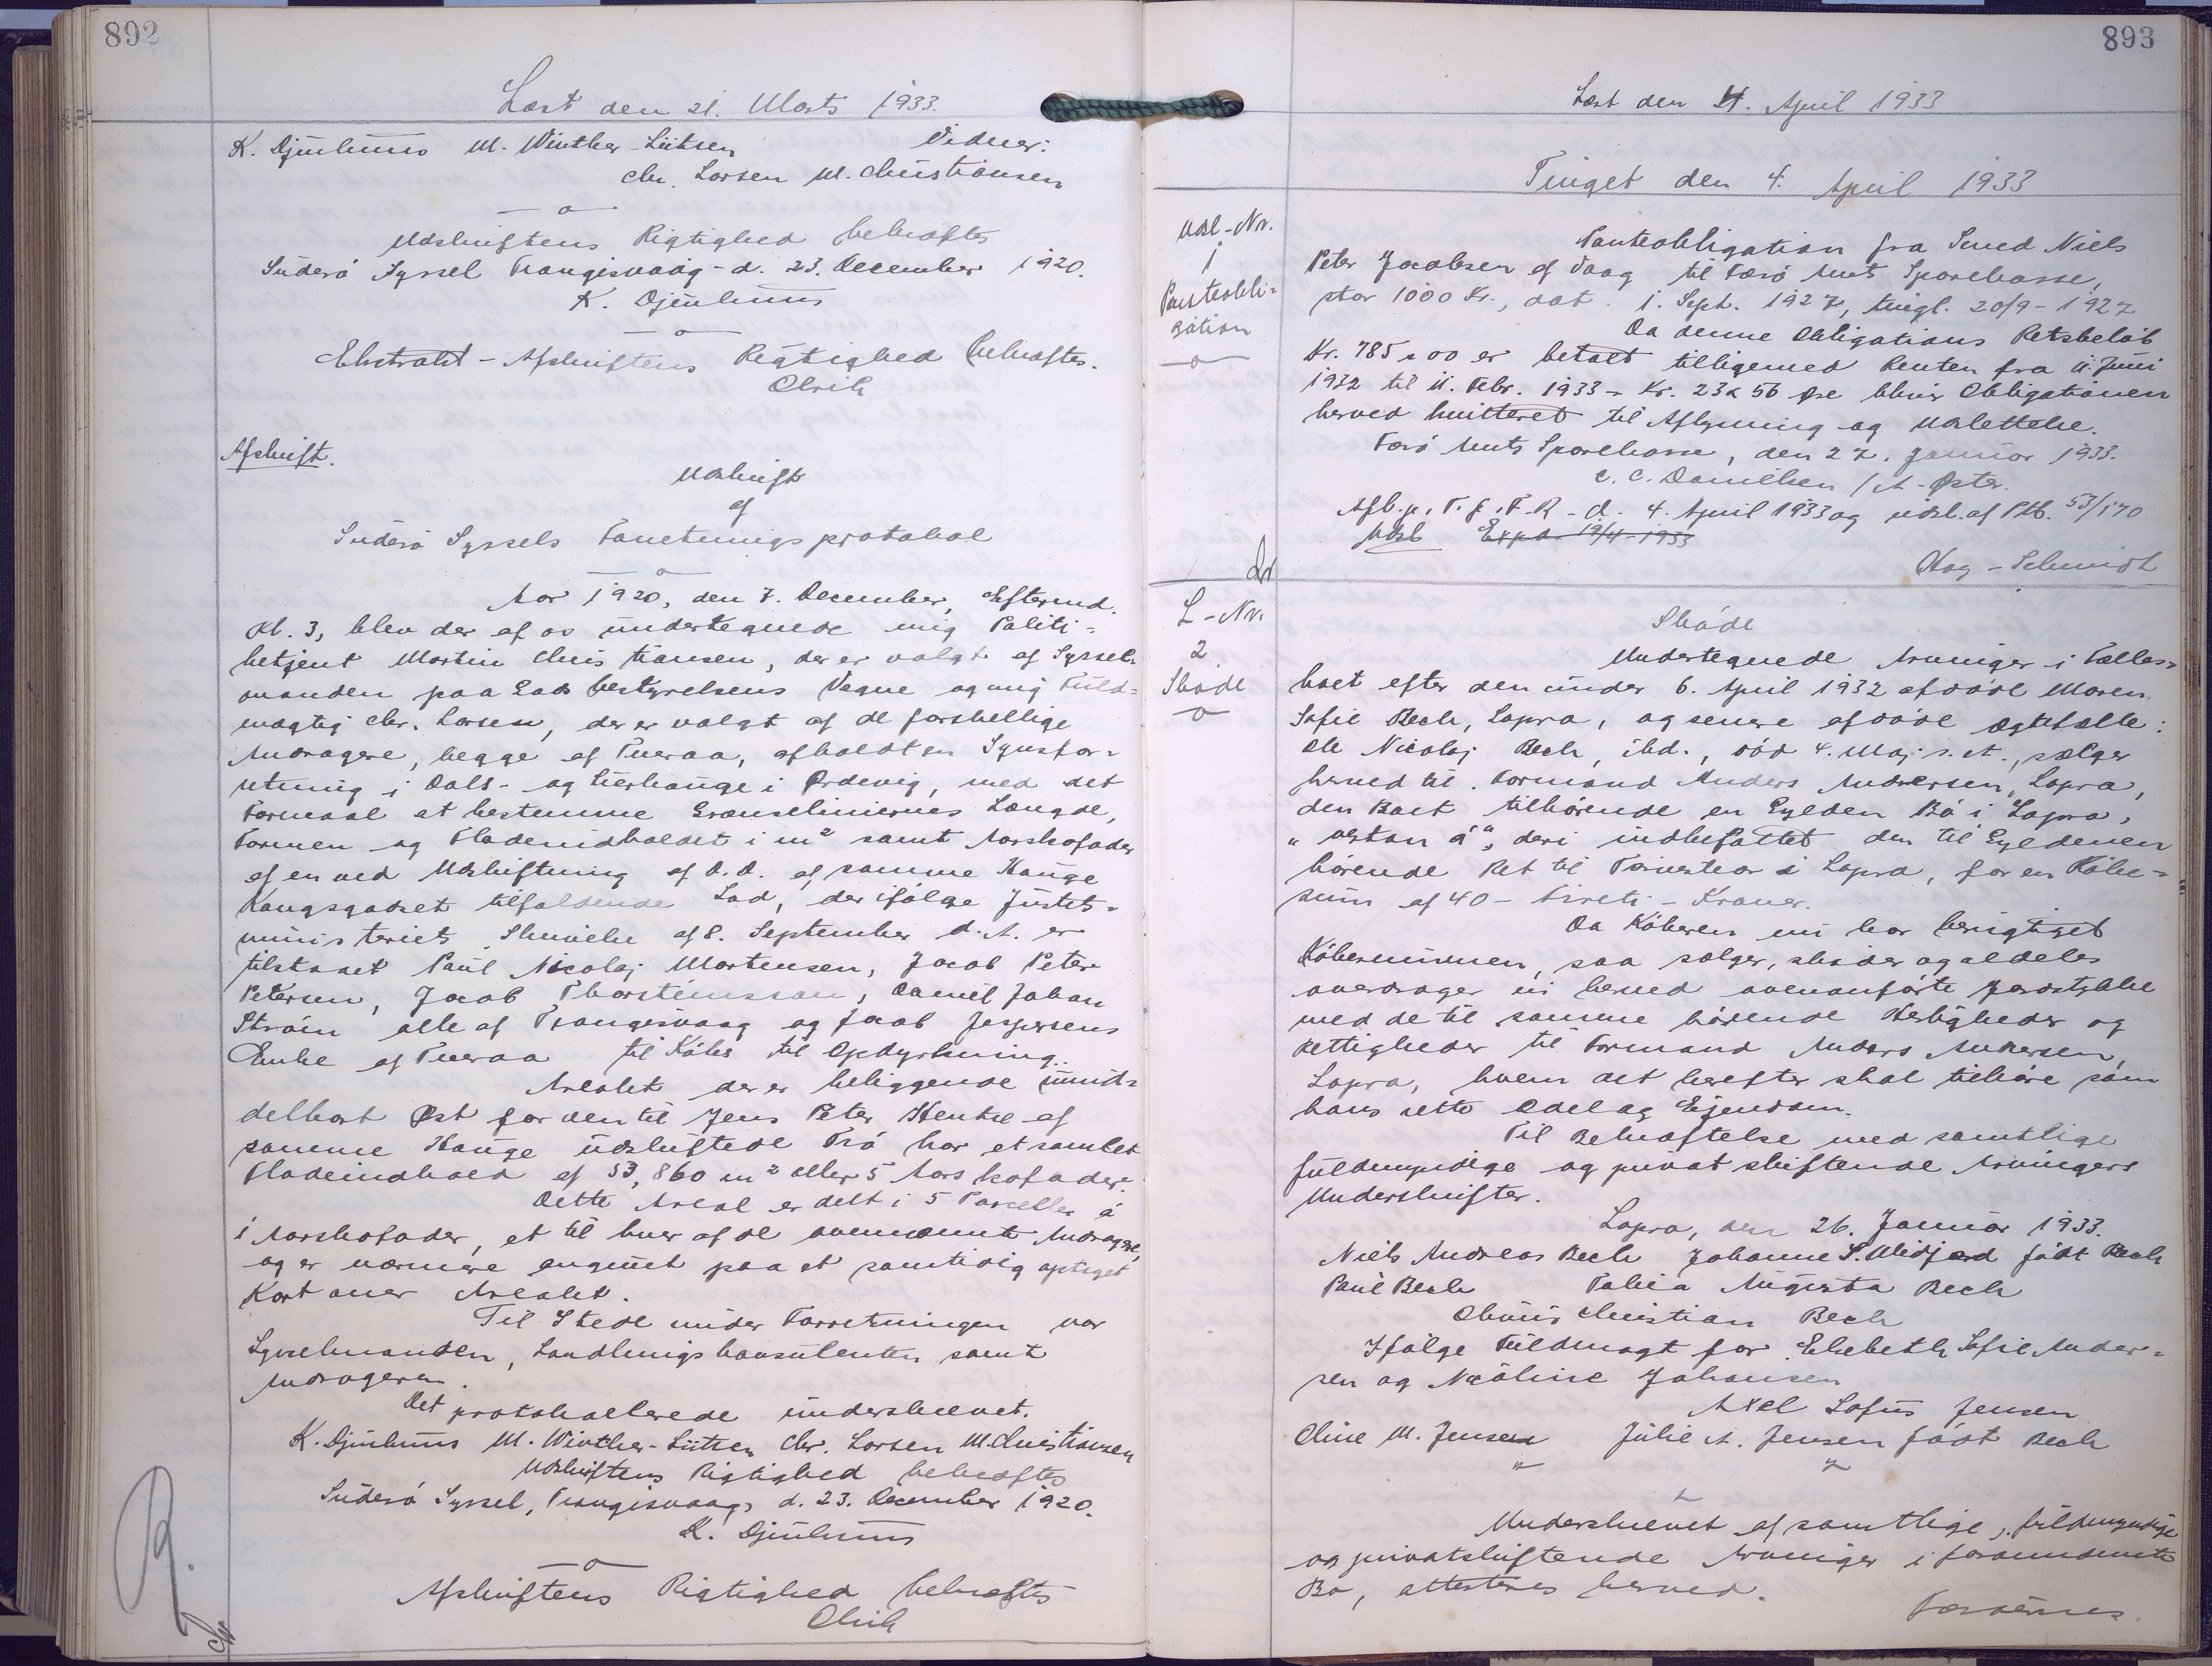 892
Læst den 21. Marts 1933.
K. Djurhuus M. Winther-Lützen Vidner:
Chr. Larsen M. Christiansen
Udskriftens Rigtighed bekræftes
Suderø Syssel Trangisvaag d. 23. December 1920.
K. Djurhuus
Ekstrakt-Afskriftens Rigtighed bekræftes.
Afskrift.
Udskrift
af
Suderø Syssels Forretningsprotokol
Aar 1920, den 7. December, Eftermd.
Kl. 3, blev der af os undertegnede mig Politi=
betjent Martin Christiansen, der er valgt af Syssel=
manden paa Gods bestyrelsens Vegne og mig Fuld=
mægtig Chr. Larsen, der er valgt af de forskellige
Andragere, begge af Tveraa, afholdt en Synsfor=
retning i Dals- og Lierhauge i Ørdevig, med det
Formaal at bestemme Grænseliniernes Længde,
Formen og Fladeindholdet i m² samt Aarskofoder
af en ved Udskiftning af O.D. af samme Hauge
Kongsgodset tilfaldende Lod, der ifølge Justits=
ministeriets Skrivelse af 8. September d.A. er
tilstaaet Paul Nicolaj Mortensen, Jacob Peter
Petersen, Jacob Thorsteinsson, Daniel Johan
Strøm alle af Trangisvaag og Jacob Jespersens
Enke af Tveraa til Købs til Opdyrkning.
Arealet der er beliggende umid=
delbart Øst for den til Jens Peter Henke af
samme Hauge udskiftede Trø har et samlet
Fladeindhold af 53,860 m² eller 5 Aars kofoder.
Dette Areal er delt i 5 Parceller à
1 Aarskofoder, et til hver af de ovennævnte Andragere,
og er nærmere angivet paa et samtidig optaget
Kort over Arealet.
Til Stede under Forretningen var
Sysselmanden, Landbrugskonsulenten samt
Andragerne.
Det protokollerede underskrevet.
K. Djurhuus M. Winther-Lützen Chr. Larsen M. Christiansen
Udskriftens Rigtighed bekræftes
Suderø Syssel, Trangisvaag, d. 23. December 1920.
K. Djurhuus
Afskriftens Rigtighed bekræftes
893
Læst den 4. April 1933
Tinget den 4. April 1933
Udsl-Nr.
1
Panteobli=
gation
Panteobligation fra Smed Niels
Peter Jacobsen af Vaag til Færø Amts Sparekasse,
stor 1000 Kr., dat. 1. Sept. 1927, tingl. 20/9-1927
Da denne Obligations Restbeløb
Kr. 785,00 er betalt tilligemed Renten fra 11. Juni
1932 til 11. Febr. 1933 = Kr. 23 56 Øre bliver Obligationen
herved kvitteret til Aflysning og Udslettelse.
Færø Amts Sparekasse, den 27. Januar 1933.
C. C. Danielsen / A. Øster.
Afl. p. T. f. F. R. d. 4. April 1933 og udsl. af Ptb. 53/170
Udsl Expd. 19/4-1933
Hag-Schmidt
L-Nr.
2
Skøde
Skøde
Undertegnede Arvinger i Fælles=
boet efter den under 6. April 1932 afdøde Maren
Sofie Bech, Lopra, og senere afdøde Ægtefælle:
Ole Nicolaj Bech, ibd., død 4. Maj s. A., sælger
herved til Formand Anders Andersen, Lopra,
den Boet tilhørende en Gylden Bø i Lopra,
"vestan á", deri indbefattet den til Gyldenen
hørende Ret til Tørveskær i Lopra, for en Købe=
sum af 40 - Fireti - Kroner.
Da Køberen nu har berigtiget
Købesummen, saa sælger, skøder og aldeles
overdrager vi herved ovenanførte Jordstykke
med de til samme hørende Herligheder og
Rettigheder til Formand Anders Andersen,
Lopra, hvem det herefter skal tilhøre som
hans rette Odel og Ejendom.
Til Bekræftelse med samtlige
fuldmyndige og privat skiftende Arvingers
Underskrifter.
Lopra, den 26. Januar 1933.
Niels Andreas Bech Johanne S. Midjord født Bech
Paul Bech Tabia Augusta Bech
Christian Bech
Ifølge Fuldmagt for Elsebeth Sofie Ander=
sen og Nicoline Johansen
Axel Lofus Jensen
Oline M. Jensen Julie A. Jensen født Bech
" "
Underskrevet af samtlige, fuldmyndige
og privatskiftende Arvinger i forannævnte
Bo, attesteres herved.
Færøernes